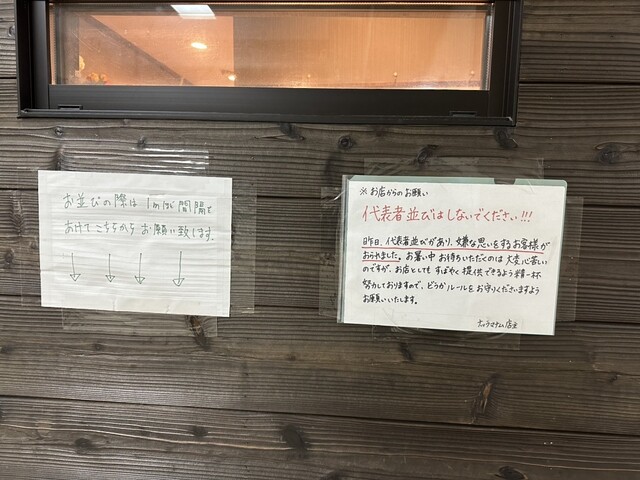 お並びの際は1mほど間隔を
あけてこちらからお願い致します。
※お店からのお願い
代表者並びはしないでください!!!
昨日、代表者並びがあり、嫌な思いをするお客様が
おられました。お暑い中お待ちいただくのは大変心苦しい
のですが、お店としてもすばやく提供できるよう精一杯
努力しておりますので、どうかルールをお守りくださいますよう
お願いいたします。
店主